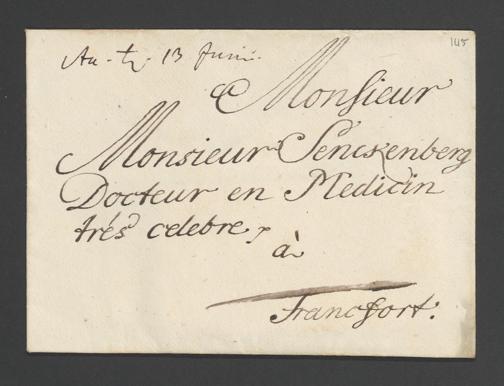 145
13 Junii.
à Monsieur
Monsieur Senckenberg
Docteur en Medicin
trés celebre,
à
Francfort.